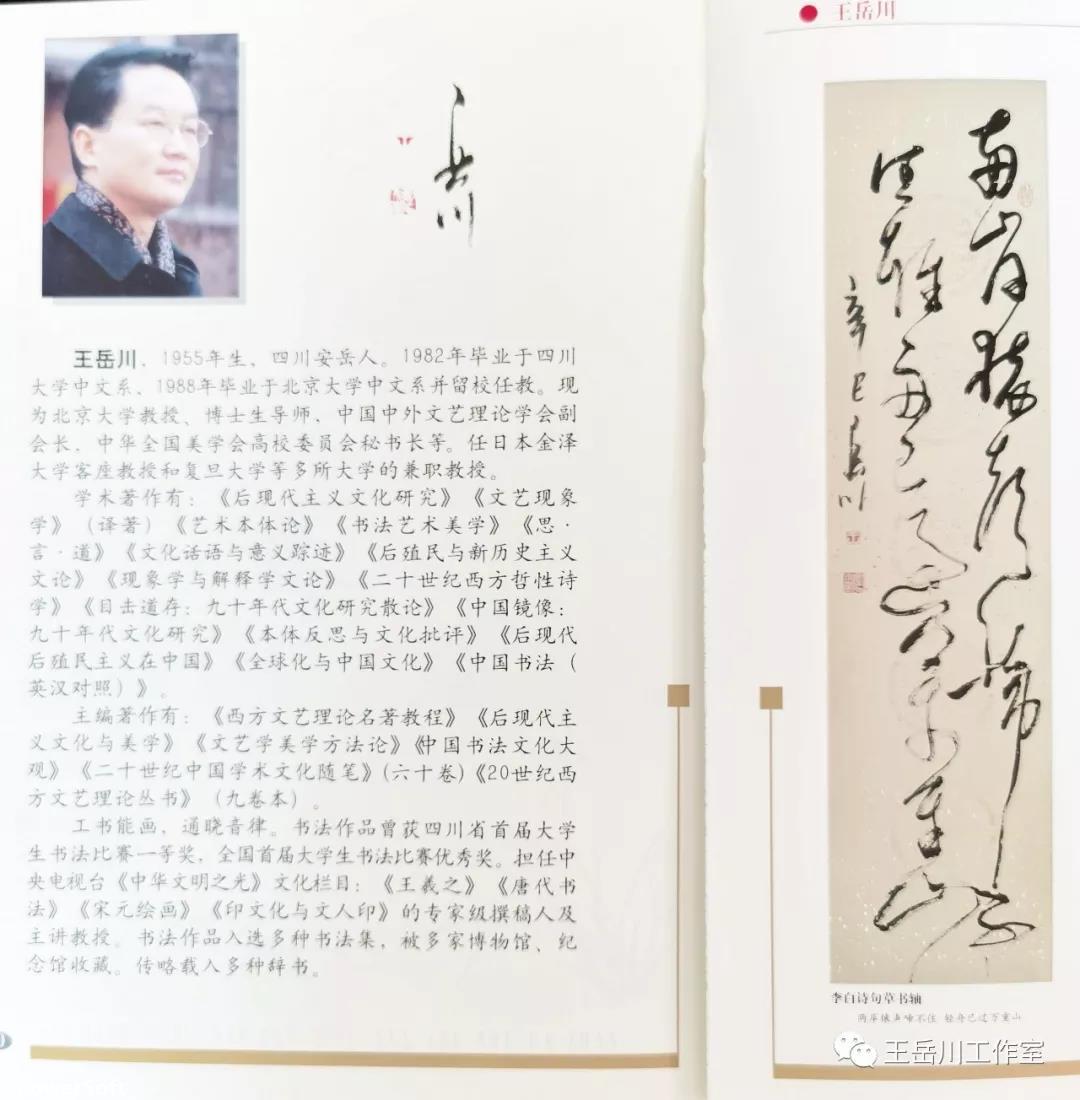 岳川
王岳川，1955年生，四川安岳人。1982年毕业于四川
大学中文系、1988年毕业于北京大学中文系并留校任教。现
为北京大学教授、博士生导师，中国中外文艺理论学会副
会长，中华全国美学会高校委员会秘书长等。任日本金泽
大学客座教授和复旦大学等多所大学的兼职教授。
学术著作有：《后现代主义文化研究》《文艺现象
学》（译著）《艺术本体论》《书法艺术美学》《思·
言·道》《文化话语与意义踪迹》《后殖民与新历史主义
文论》《现象学与解释学文论》《二十世纪西方哲性诗
学》《目击道存：九十年代文化研究散论》《中国镜像：
九十年代文化研究》《本体反思与文化批评》《后现代
后殖民主义在中国》《全球化与中国文化》《中国书法（
英汉对照）》。
主编著作有：《西方文艺理论名著教程》《后现代主
义文化与美学》《文艺学美学方法论》《中国书法文化大
观》《二十世纪中国学术文化随笔》(六十卷)《20世纪西
方文艺理论丛书》（九卷本）。
工书能画，通晓音律。书法作品曾获四川省首届大学
生书法比赛一等奖，全国首届大学生书法比赛优秀奖。担任中
央电视台《中华文明之光》文化栏目：《王羲之》《唐代书
法》《宋元绘画》《印文化与文人印》的专家级撰稿人及
主讲教授。书法作品入选多种书法集，被多家博物馆、纪
念馆收藏。传略载入多种辞书。
王岳川
两岸猿声啼不
住轻舟已过万重山
辛巳岳川
李白诗句草书轴
两岸猿声啼不住 轻舟已过万重山
王岳川工作室